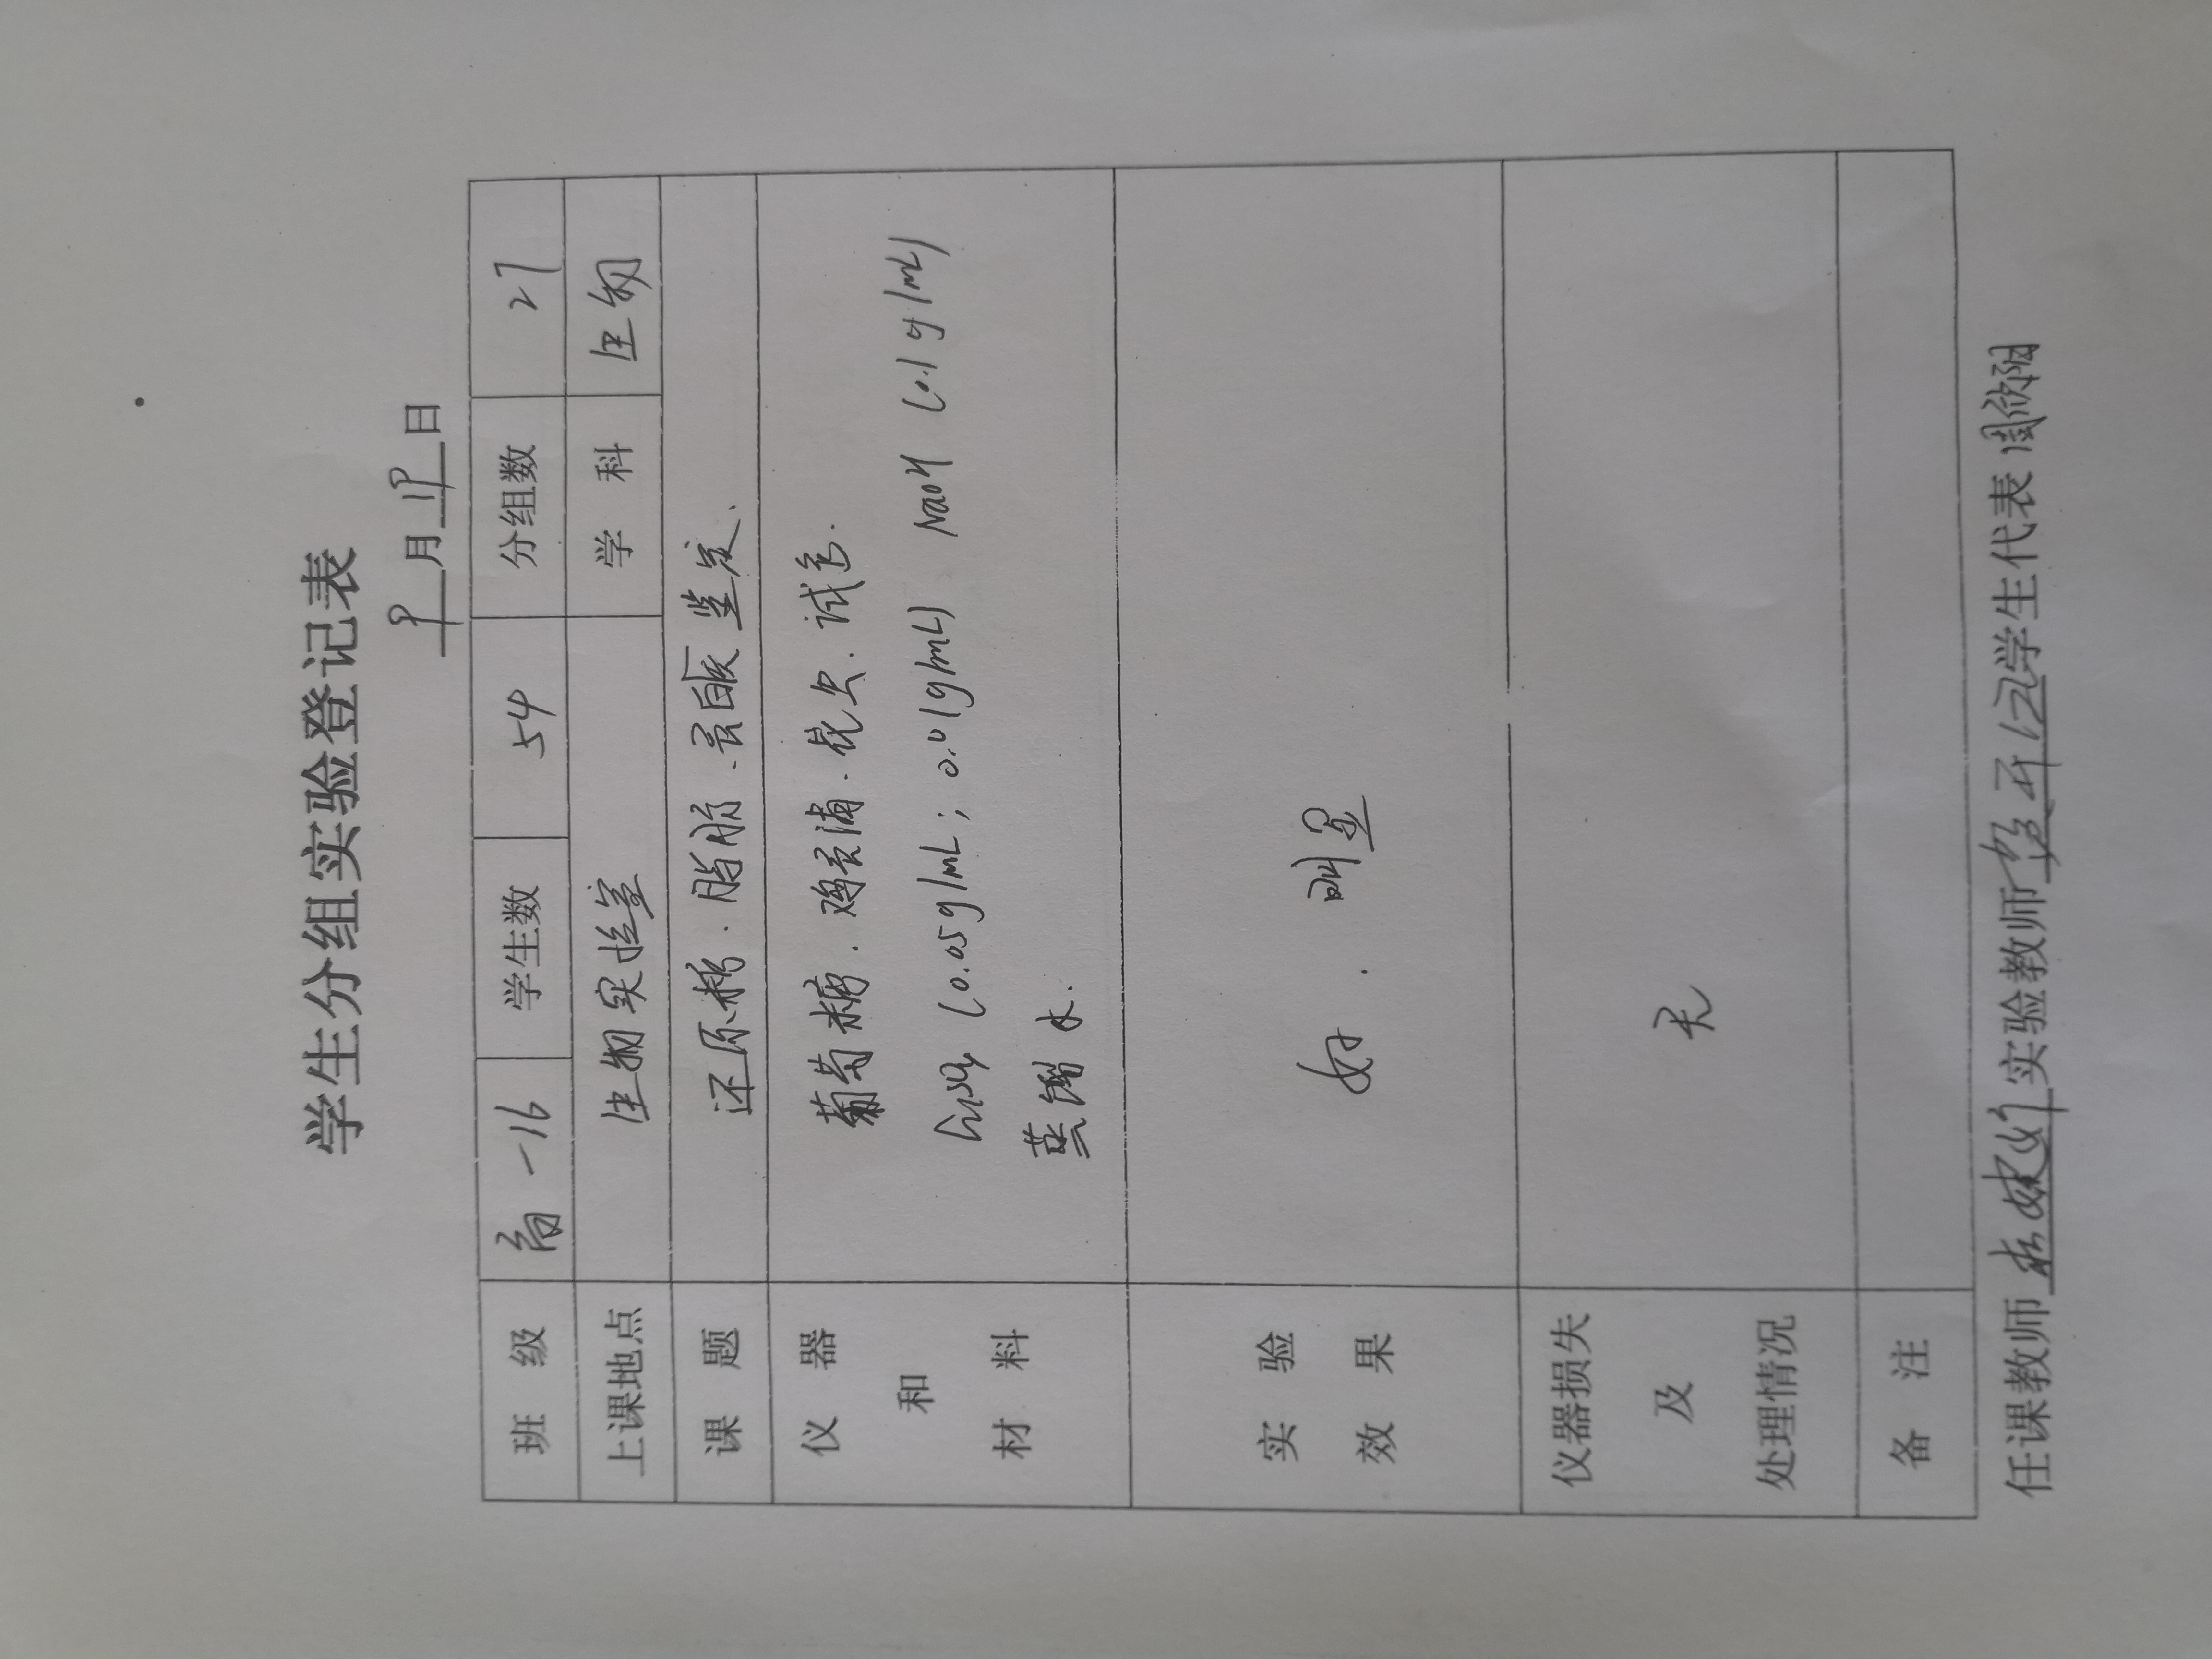 学生分组实验登记表
9月19日
班级 高一16 学生数 54 分组数 27
上课地点 生物实验室 学科 生物
课题 还原糖.脂肪.蛋白质鉴定.
仪器和材料 葡萄糖.鸡蛋清.花生.试管.
CuSO4 (0.05g/mL; 0.01g/mL) NaOH (0.1g/mL)
蒸馏水.
实验效果 好.明显
仪器损失及处理情况 无
备注
任课教师 实验教师 学生代表